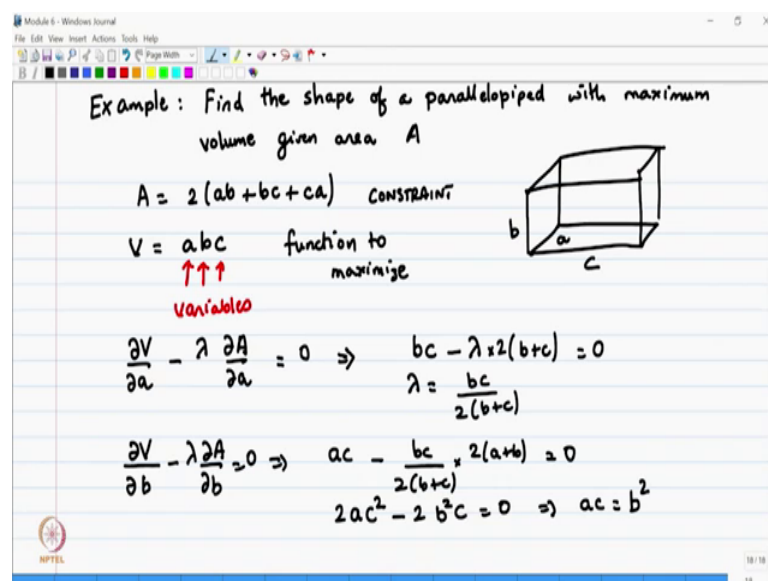 Module 6 - Windows Journal
File Edit View Insert Actions Tools Help
Page Width
B I
Example : Find the shape of a parallelopiped with maximum
volume given area A
A = 2(ab + bc + ca) CONSTRAINT
V = abc function to
maximize
↑↑↑
variables
b
a
c
∂V/∂a - λ ∂A/∂a = 0 ⇒ bc - λ×2(b+c) = 0
λ = bc/2(b+c)
∂V/∂b - λ∂A/∂b = 0 ⇒ ac - bc/2(b+c) × 2(a+b) = 0
2ac² - 2b²c = 0 ⇒ ac = b²
NPTEL
18 / 18